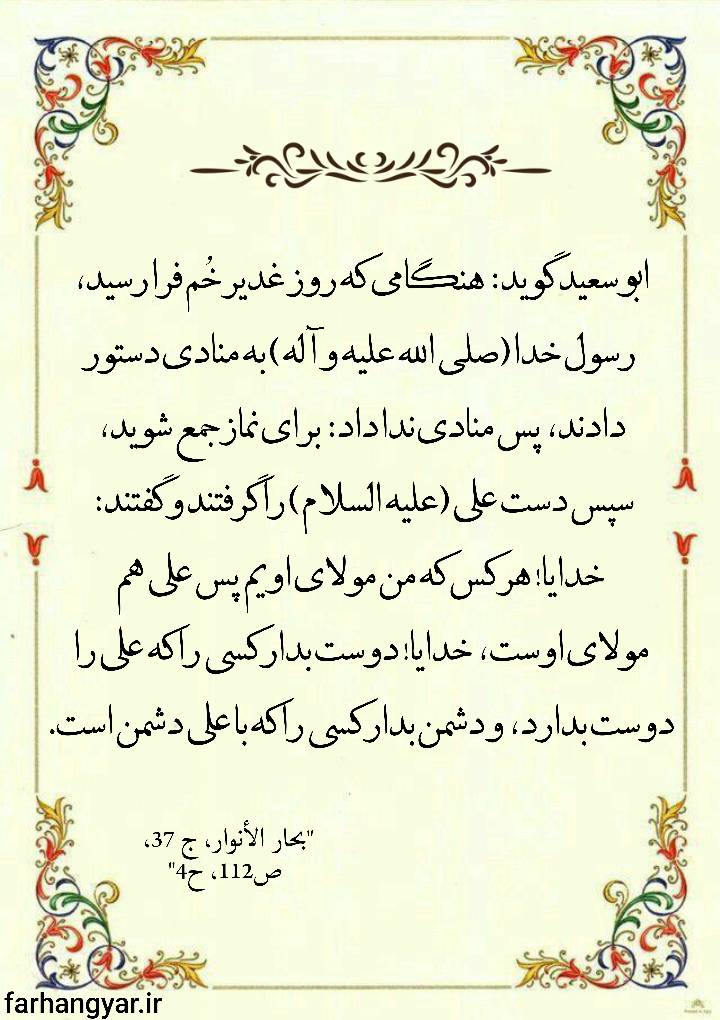 ابو سعید گوید: هنگامی که روز غدیر خُم فرا رسید،
رسول خدا (صلی الله علیه و آله) به منادی دستور
دادند، پس منادی ندا داد: برای نماز جمع شوید،
سپس دست علی (علیه السلام) را گرفتند و گفتند:
خدایا؛ هر کس که من مولای اویم پس علی هم
مولای اوست، خدایا؛ دوست بدار کسی را که علی را
دوست بدارد، و دشمن بدار کسی را که با علی دشمن است.
"بحار الأنوار، ج 37،
ص112، ح4"
farhangyar.ir